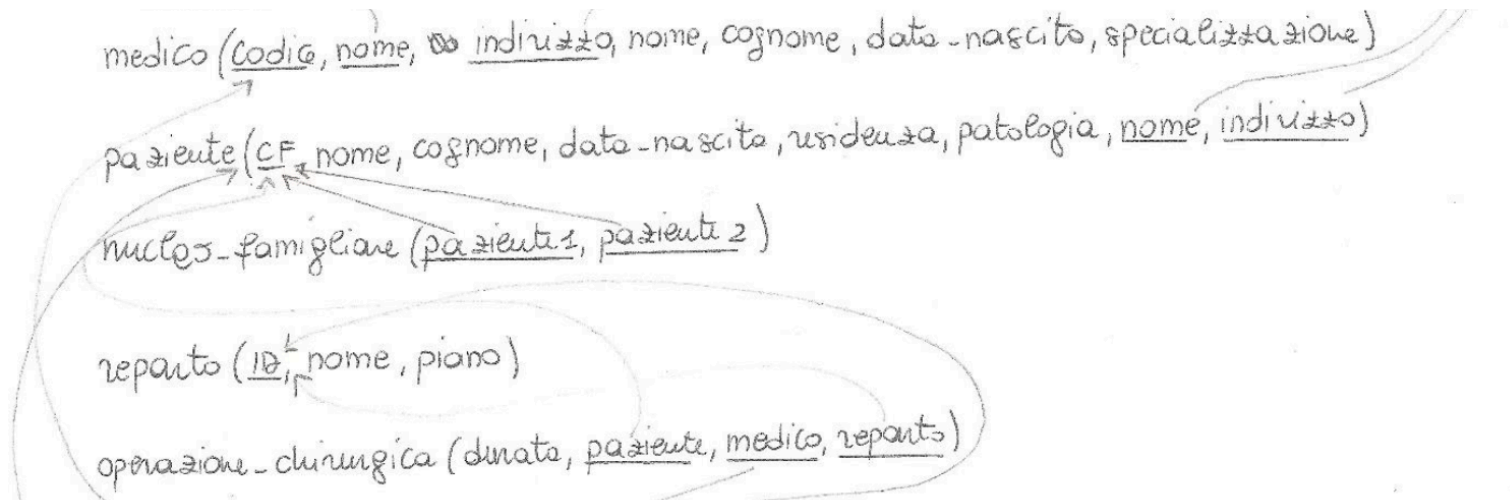 medico (codice, nome, indirizzo, nome, cognome, data-nascita, specializzazione)
paziente (CF, nome, cognome, data-nascita, residenza, patologia, nome, indirizzo)
nucleo-famigliare (paziente1, paziente2)
reparto (ID, nome, piano)
operazione-chirurgica (durata, paziente, medico, reparto)